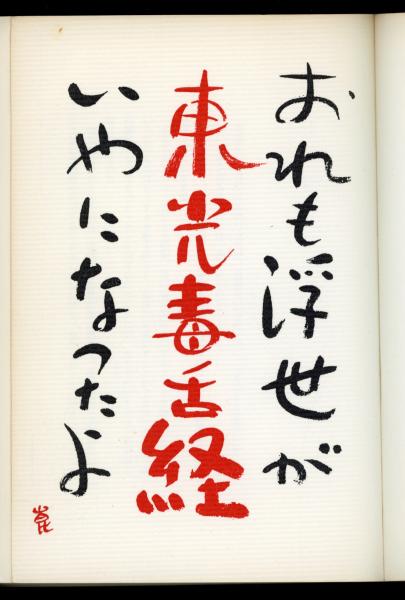 おれも浮世が
東光毒舌経
いやになったよ